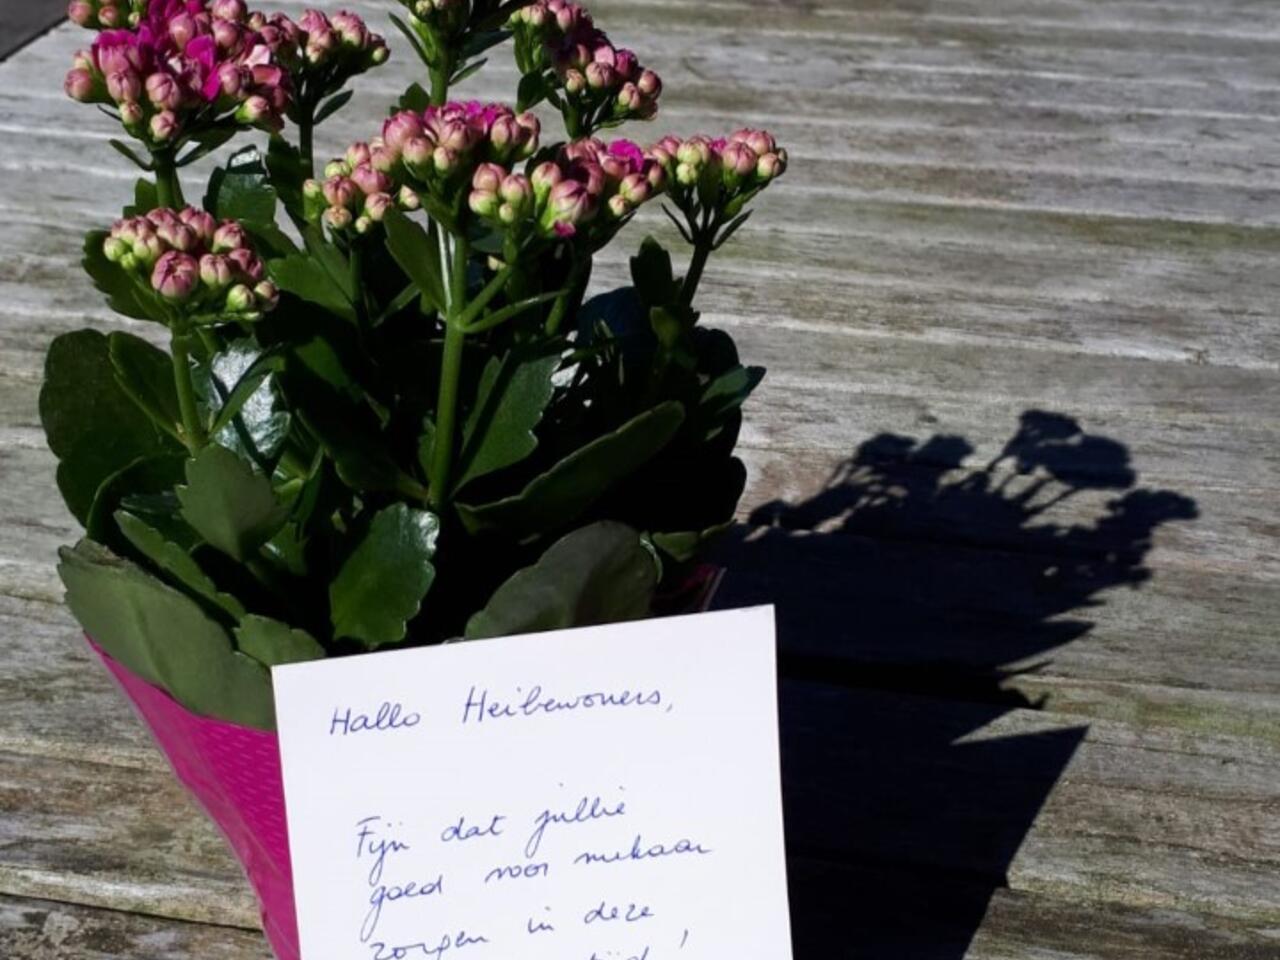 Hallo Heibewoners,
Fijn dat jullie
goed voor mekaar
zorgen in deze
tijd!